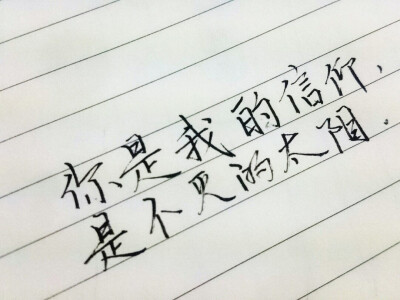 你是我的信仰,
是不的太阳.